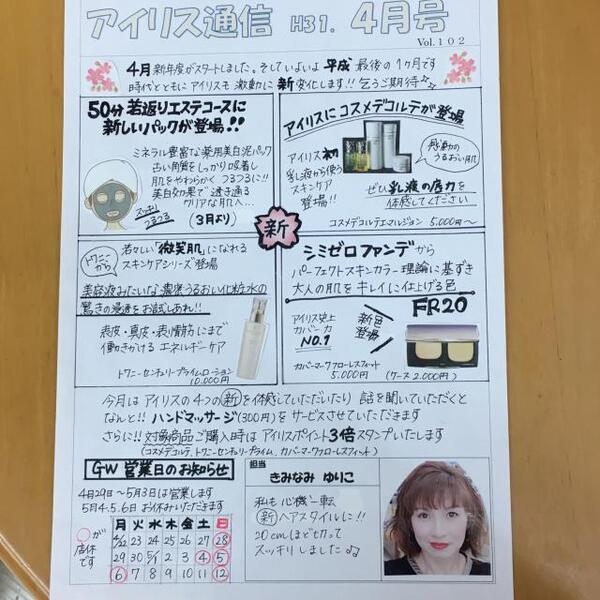 アイリス通信 H31. 4月号
Vol.102
4月 新年度がスタートしました。そしていよいよ 平成 最後の1ヶ月です
時代とともにアイリスも激動に新変化します!! 乞うご期待☆
50分 若返りエステコースに
新しいパックが登場!!
ミネラル豊富な薬用美白泥パック
古い角質をしっかり吸着し
肌をやわらかく つるつるに!!
美白効果で透き通る
クリアな肌へ…
スッキリ
つるつる
(3月より)
アイリスにコスメデコルテが登場
アイリス初
乳液から使う
スキンケア
登場!!
感動の
うるおい肌
ぜひ乳液の底力を
体感してください
コスメデコルテエマルジョン 5,000円~
新
トワニー
から
若々しい「微笑肌」になれる
スキンケアシリーズ登場
美容液みたいな濃密うるおい化粧水の
驚きの浸透をお試しあれ!!
表皮・真皮・表情筋にまで
働きかける エネルギーケア
トワニーセンチュリープライムローション
10,000円
シミゼロファンデから
パーフェクトスキンカラー理論に基ずき
大人の肌をキレイに仕上げる色
FR20
アイリス史上
カバー力
NO.1
新色
登場
カバーマークフローレスフィット
5,000円
(ケース2,000円)
今月はアイリスの4つの新を体感していただいたり 話を聞いていただくと
なんと!! ハンドマッサージ(300円)をサービスさせていただきます
さらに!! 対象商品ご購入時はアイリスポイント3倍スタンプいたします
(コスメデコルテ、トワニーセンチュリープライム、カバーマークフローレスフィット)
GW 営業日のお知らせ
4月29日~5月3日は営業します
5月4.5.6日お休みいただきます
○が
店休
です
月 火 水 木 金 土 日
4/22 23 24 25 26 27 28
29 30 5/1 2 3 4 5
6 7 8 9 10 11 12
担当
きみなみ ゆりこ
私も心機一転
新ヘアスタイルに!!
20cmほど切って
スッキリしました♪